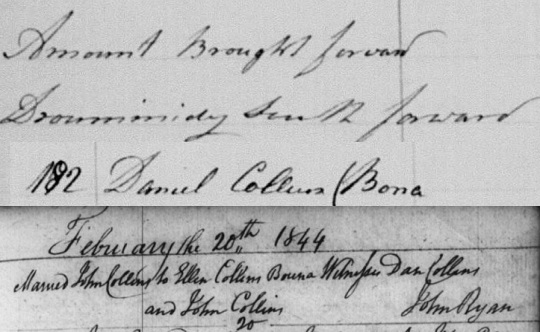 Amount Brought forward
Drouminidy South forward
182 Daniel Collins (Bona
February the 20th 1844
Married John Collins to Ellen Collins Bouna Witnesses Dan Collins
and John Collins John Ryan
20